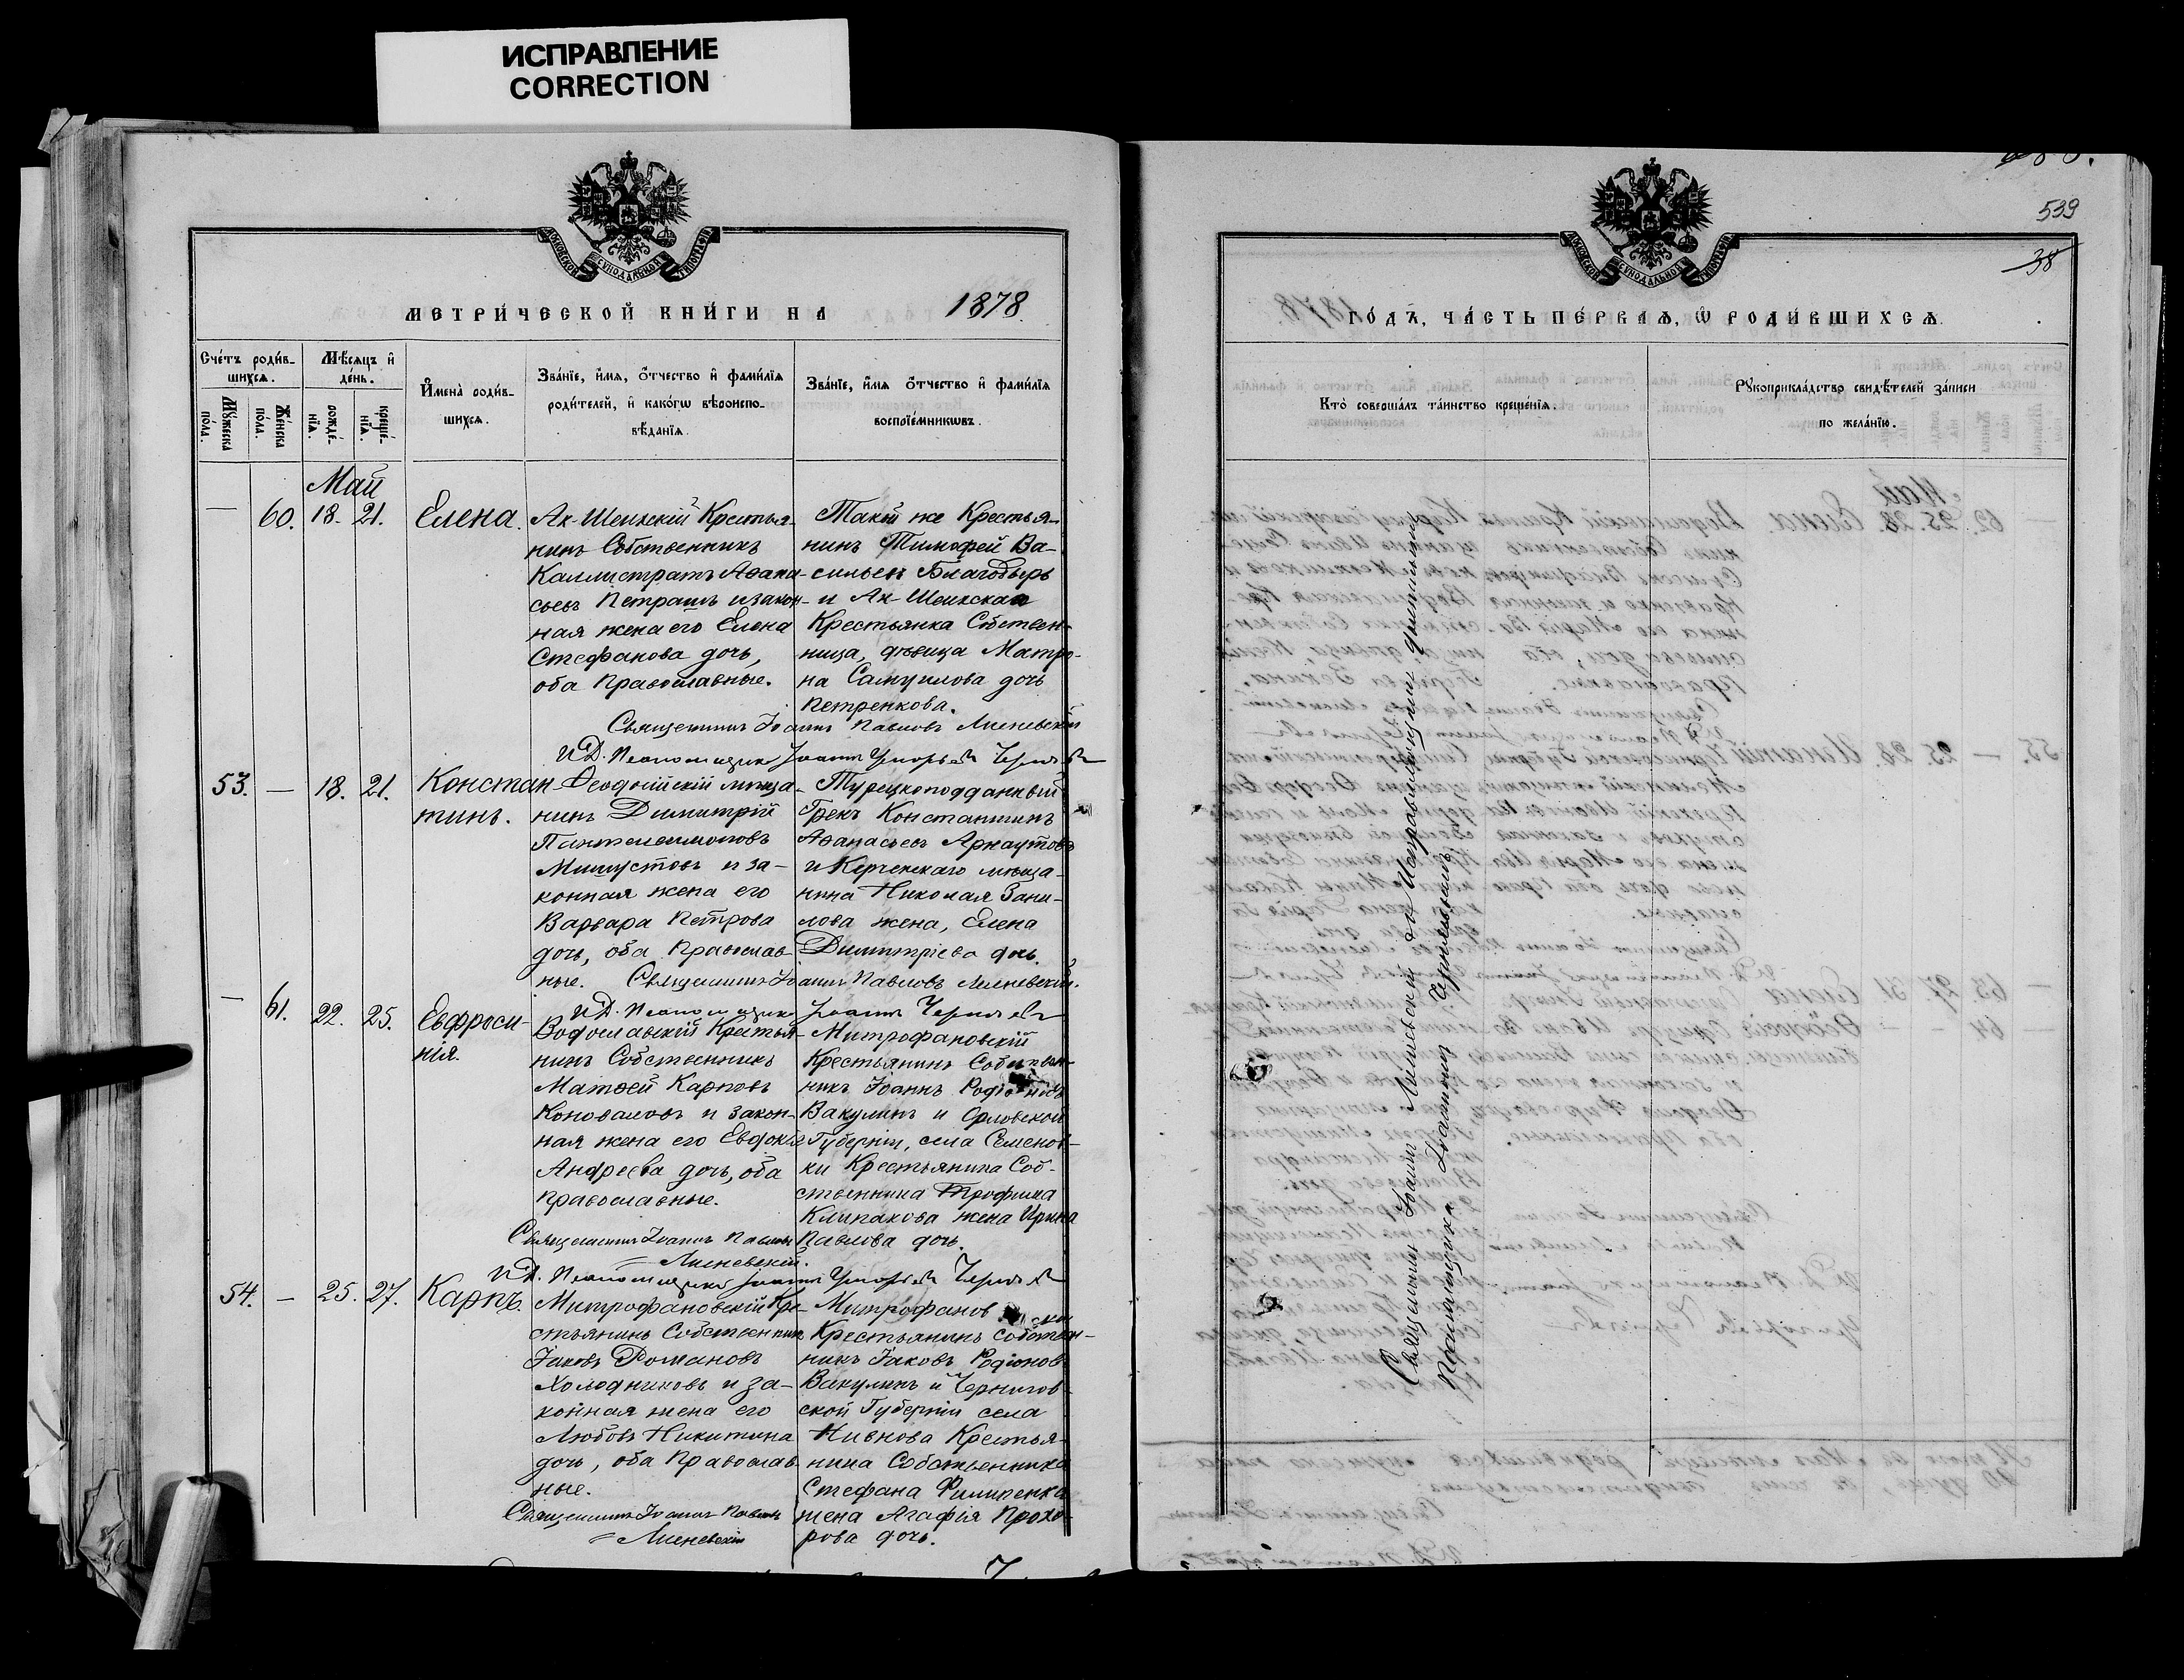 ИСПРАВЛЕНИЕ
CORRECTION
МОСКОВСКОЙ СѴНОДАЛЬНОЙ ТИПОГРАФІИ
МЕТРИ́ЧЕСКОЙ КНИ́ГИ НА 1878
Сче́тъ роди́в-
шихсѧ.
Мѣ́сѧцъ и҆
де́нь.
Мꙋ́жеска по́ла.
Же́нска по́ла.
рожде́-
нїѧ.
креще́-
нїѧ.
И҆мена̀ роди́в-
шихсѧ.
Зва́нїе, и҆́мѧ, ѻ҆́тчество и҆ фами́лїѧ
роди́телей, и҆ како́гѡ вѣроиспо-
вѣ́данїѧ.
Зва́нїе, и҆́мѧ ѻ҆́тчество и҆ фами́лїѧ
воспрїе́мникѡвъ.
Май
— 60. 18. 21. Елена.
Ак-Шеихскій Крестья-
нинъ Собственникъ
Каллистратъ Аѳана-
сьевъ Петрашъ и закон-
ная жена его Елена
Стефанова дочь,
оба Православные.
Такой же Крестья-
нинъ Тимофей Ва-
сильевъ Благодыръ
и Ак-Шеихская
Крестьянка Собствен-
ница, дѣвица Матро-
на Самуилова дочь
Петренкова.
Священникъ Іоаннъ Павловъ Линевскій
И.Д. Псаломщика Іоаннъ Григорьевъ
53. — 18. 21. Констан-
тинъ.
Ѳеодосійскій мѣща-
нинъ Димитрій
Пантелеимоновъ
и за-
конная жена его
Варвара Петрова
дочь, оба Православ-
ные.
Турецкоподданный
Грекъ Константинъ
Аѳанасьевъ Арнаутовъ
и Керченскаго мѣща-
нина Николая Зани-
лова жена, Елена
Димитріева дочь.
Священникъ Іоаннъ Павловъ Линевскій.
И.Д. Псаломщика Іоаннъ
— 61. 22. 25. Евфроси-
нія.
Водославскій Крестья-
нинъ Собственникъ
Матѳей Карповъ
Коноваловъ и закон-
ная жена его Евдокія
Андреева дочь, оба
Православные.
Митрофановскій
Крестьянинъ Собствен-
никъ Іоаннъ Родіоновъ
Вакулинъ и Орловской
Губерніи, села Семенов-
ки Крестьянина Соб-
ственника Трофима
Клипакова жена Ирина
Павлова дочь.
Священникъ Іоаннъ Павловъ
Линевскій.
И.Д. Псаломщика Іоаннъ Григорьевъ
54. — 25. 27. Карпъ.
Митрофановскій Кре-
стьянинъ Собственникъ
Іаковъ Романовъ
Холодняковъ и за-
конная жена его
Любовь Никитина
дочь, оба Православ-
ные.
Крестьянинъ Собствен-
никъ Іаковъ Родіоновъ
Вакулинъ и Чернигов-
ской Губерніи села
Ивнова Крестья-
нина Собственника
Стефана Филипенка
жена Агафія Прохо-
рова дочь.
Священникъ Іоаннъ Павловъ
Линевскій
539
38
МОСКОВСКОЙ СѴНОДАЛЬНОЙ ТИПОГРАФІИ
ГО́ДЪ, ЧА́СТЬ ПЕ́РВАѦ, Ѡ҆ РОДИ́ВШИХСѦ.
Кто̀ соверша́лъ та́инство креще́нїѧ.
Рꙋкоприкла́дство свидѣ́телей за́писи
по жела́нїю.
Священникъ Іоаннъ Линевскій и Исправляющимъ должность
Псаломщика Іоанномъ